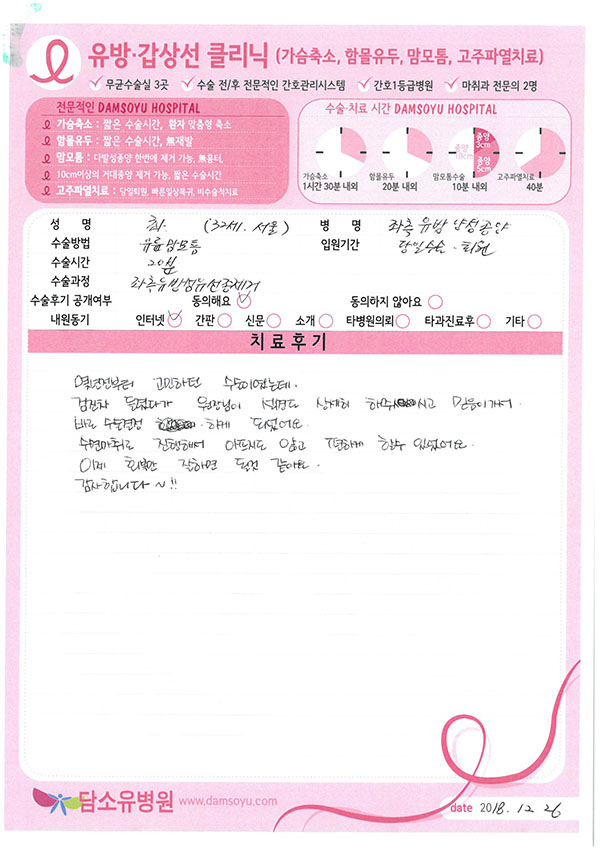 유방·갑상선 클리닉 (가슴축소, 함몰유두, 맘모톰, 고주파열치료)
무균수술실 3곳 수술 전/후 전문적인 간호관리시스템 간호1등급병원 마취과 전문의 2명
전문적인 DAMSOYU HOSPITAL
가슴축소 : 짧은 수술시간, 환자 맞춤형 축소
함몰유두 : 짧은 수술시간, 無재발
맘모톰 : 다발성종양 한번에 제거 가능, 無흉터,
10cm이상의 거대종양 제거 가능, 짧은 수술시간
고주파열치료 : 당일퇴원, 빠른일상복귀, 비수술적치료
수술·치료 시간 DAMSOYU HOSPITAL
종양 10cm 종양 3cm 종양 5cm
가슴축소 함몰유두 맘모톰수술 고주파열치료
1시간 30분 내외 20분 내외 10분 내외 40분
성 명 최 (32세. 서울) 병 명 좌측 유방 양성종양
수술방법 유륜맘모톰 입원기간 당일수술. 퇴원
수술시간 20분
수술과정 좌측유방섬유선종제거
수술후기 공개여부 동의해요 동의하지 않아요
내원동기 인터넷 간판 신문 소개 타병원의뢰 타과진료후 기타
치료후기
몇년전부터 고민하던 수술이었는데.
검진차 들렸다가 원장님이 설명도 상세히 해주시고 믿음이가서
바로 수술결정 하게 되었어요.
수면마취로 진행해서 아프지도 않고 편하게 할수 있었어요.
이제 회복만 잘하면 될것 같아요.
감사합니다~!!
담소유병원 www.damsoyu.com
date 2018. 12. 26